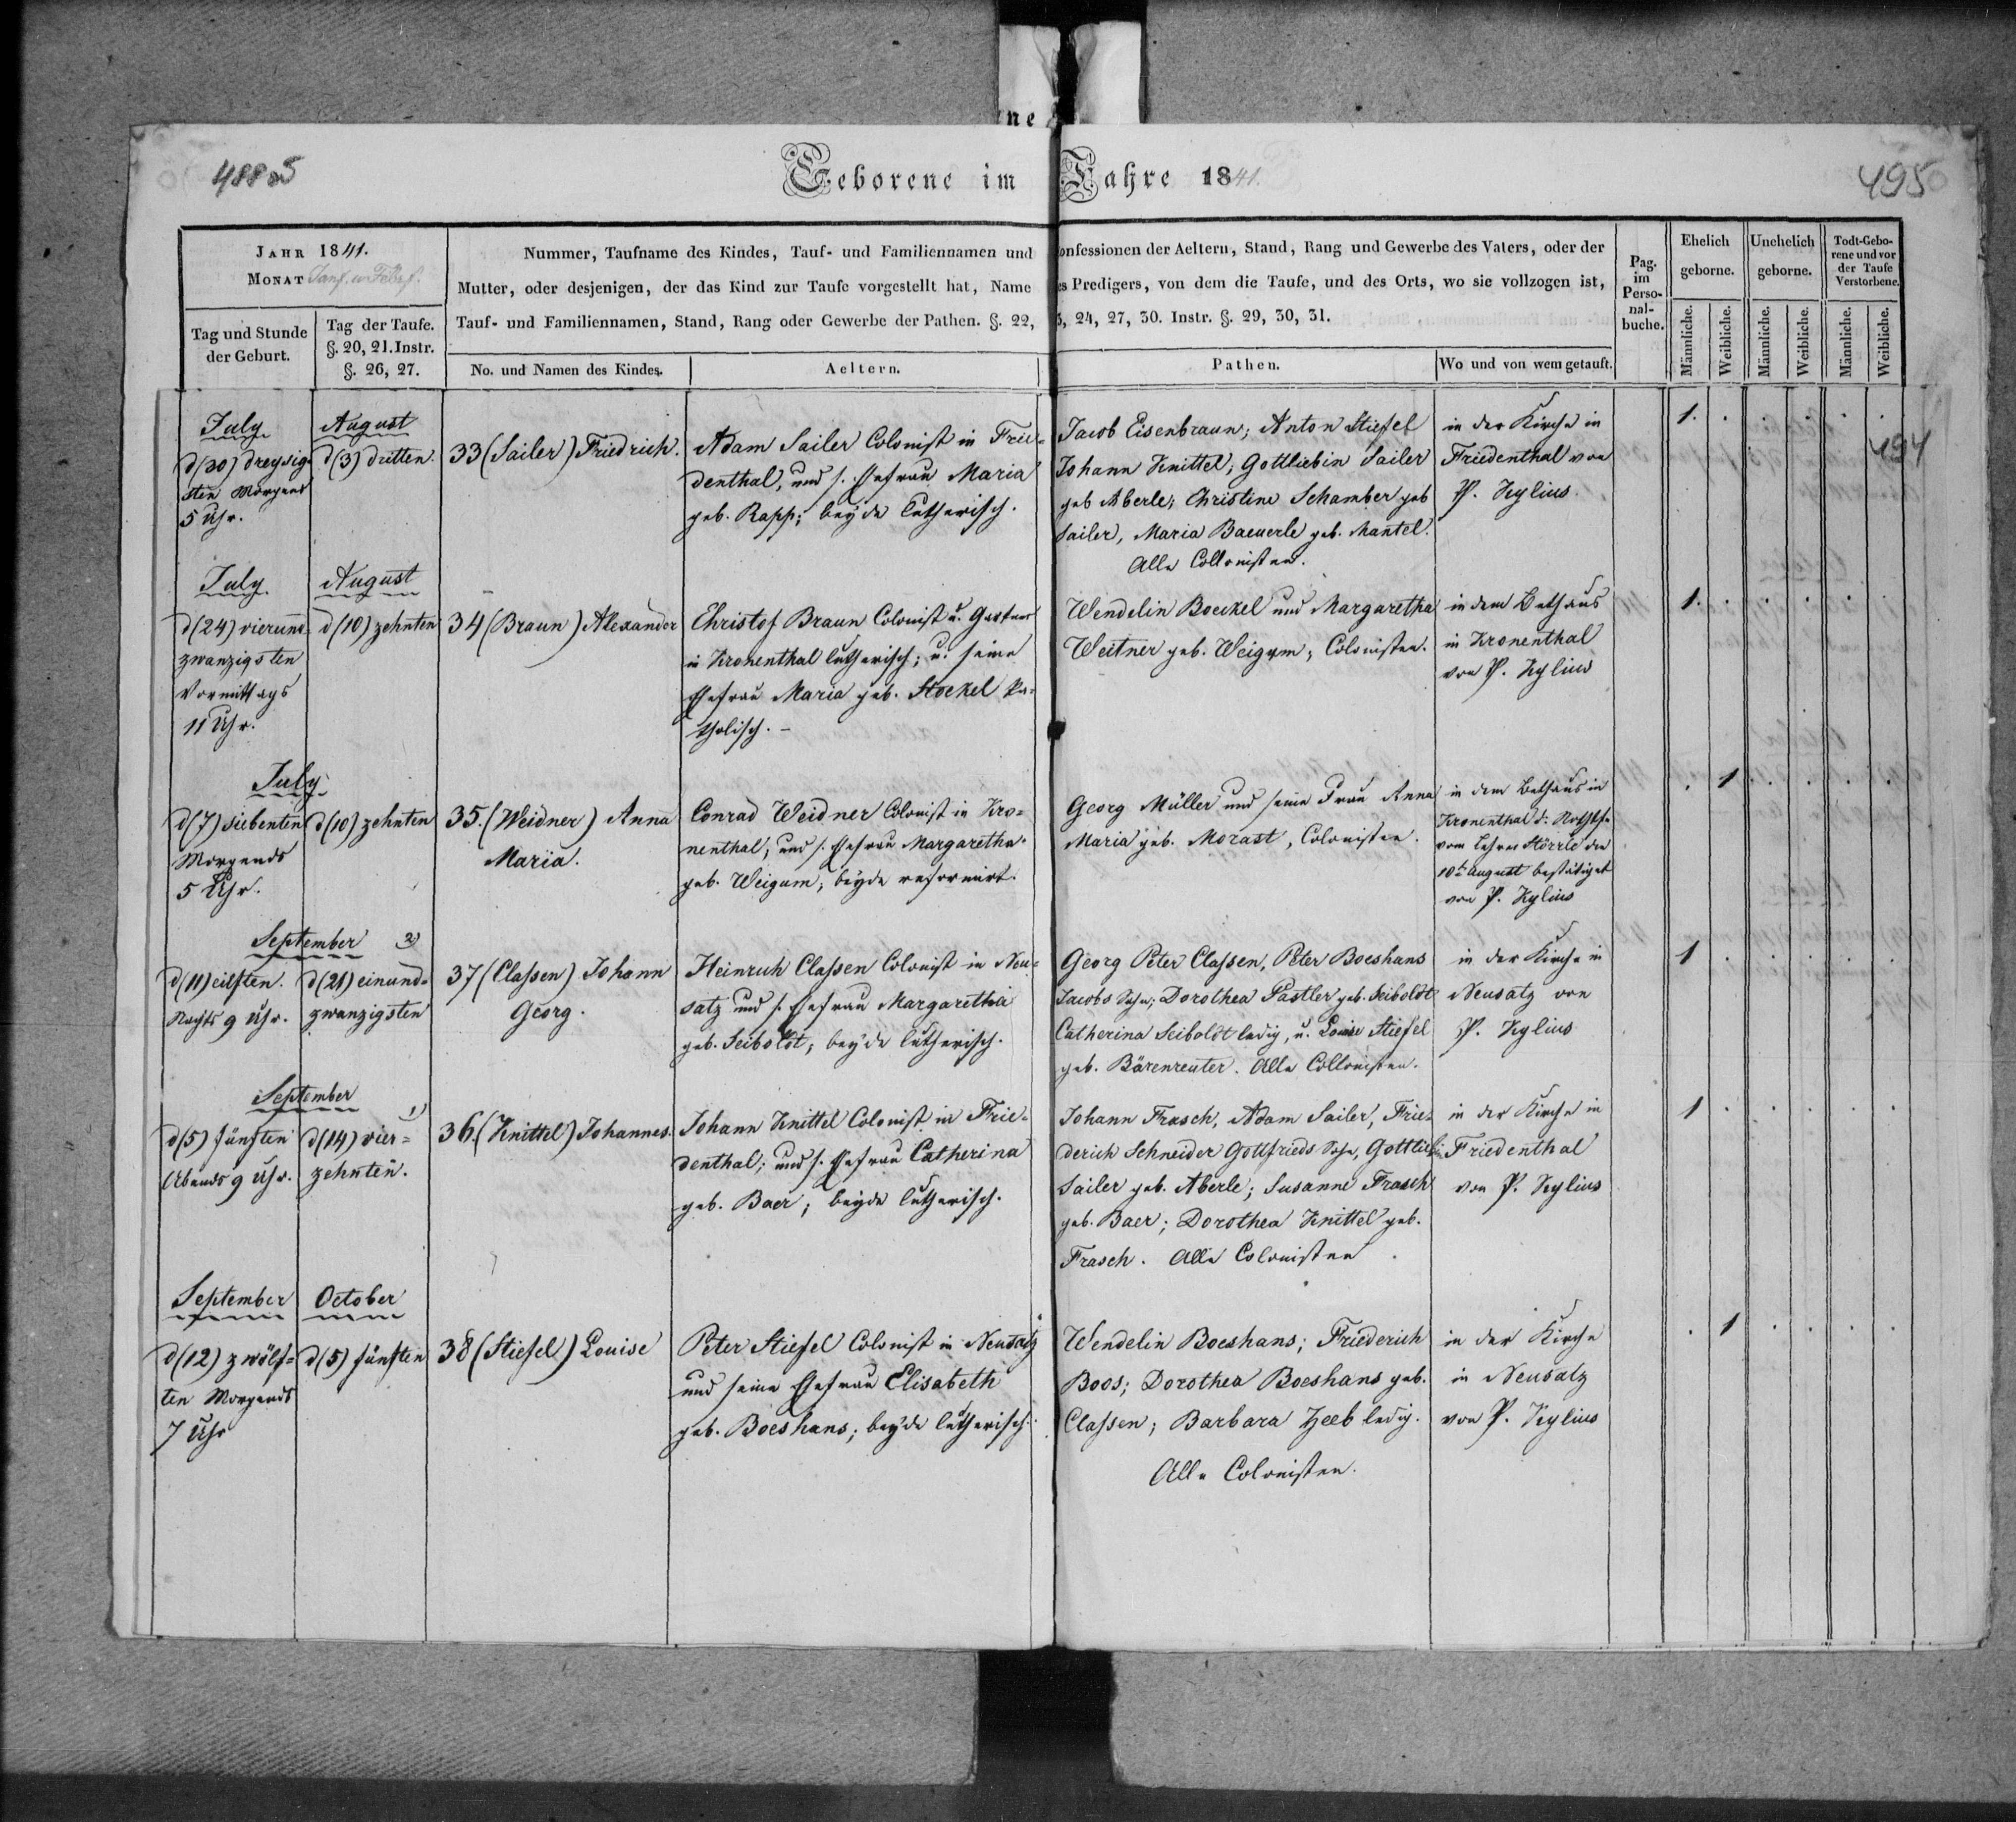 ne
488 b
Geborene im Jahre 1841.
495
494
JAHR 1841.
MONAT
Tag und Stunde
der Geburt.
Tag der Taufe.
§. 20, 21. Instr.
§. 26, 27.
Nummer, Taufname des Kindes, Tauf- und Familiennamen und
onfessionen der Aeltern, Stand, Rang und Gewerbe des Vaters, oder der
Mutter, oder desjenigen, der das Kind zur Taufe vorgestellt hat, Name
es Predigers, von dem die Taufe, und des Orts, wo sie vollzogen ist,
Tauf- und Familiennamen, Stand, Rang oder Gewerbe der Pathen. §. 22,
3, 24, 27, 30. Instr. §. 29, 30, 31.
No. und Namen des Kindes.
Aeltern.
Pathen.
Wo und von wem getauft.
Pag.
im
Perso-
nal-
buche.
Ehelich
geborne.
Unehelich
geborne.
Todt-Gebo-
rene und vor
der Taufe
Verstorbene.
Männliche.
Weibliche.
Männliche.
Weibliche.
Männliche.
Weibliche.
July
d (30) dreysig-
sten Morgends
5 Uhr.
August
d (3) dritten.
33 (Sailer) Friedrich.
Adam Sailer Colonist in Frie-
denthal, und s. Ehefrau Maria
geb. Rapp; beyde lutherisch.
Jacob Eisenbraun; Anton Stiefel
Johann Knittel; Gottliebin Sailer
geb Aberle; Christine Schamber geb
Sailer, Maria Baeuerle geb. Mantel.
Alle Collonisten.
in der Kirche in
Friedenthal von
P. Kylius.
1.
July.
d (24) vierund-
zwanzigsten
Vormittags
11 Uhr.
August
d (10) zehnten
34 (Braun) Alexander
Christof Braun Colonist u. Gartner
in Kronenthal lutherisch; u. seine
Ehefrau Maria geb. Stoekel ka-
tholisch. –
Wendelin Boeckel und Margaretha
Weitner geb. Weigum; Colonisten.
in dem Bethaus
in Kronenthal
von P. Kylius
1.
July
d (7) siebenten
Morgends
5 Uhr.
d (10) zehnten
35. (Weidner) Anna
Maria.
Conrad Weidner Colonist in Kro-
nenthal, und s. Ehefrau Margaretha
geb. Weigum; beyde reformirt.
Georg Müller und seine Frau Anna
Maria geb. Morast, Colonisten.
in dem Bethaus in
Kronenthal d. Nothtfe
vom Lehrer Störrle den
10t August bestätiget
von P. Kylius
1
September 2)
d (11) eilften.
Nachts 9 Uhr.
d (21) einund-
zwanzigsten
37 (Classen) Johann
Georg.
Heinrich Classen Colonist in Neu-
satz und s. Ehefrau Margaretha
geb. Seiboldt; beyde lutherisch.
Georg Peter Classen, Peter Boeshans
Jacobs Sohn; Dorothea Pastler geb. Seiboldt
Catherina Seiboldt ledig, u. Louise Stiefel
geb. Bärenreuter. Alle Collonisten.
in der Kirche in
Neusatz von
P. Kylius
1
September
1)
d (5) fünften
Abends 9 Uhr.
d (14) vier-
zehnten.
36. (Knittel) Johannes.
Johann Knittel Colonist in Frie-
denthal; und s. Ehefrau Catherina
geb. Baer; beyde lutherisch.
Johann Frasch, Adam Sailer, Frie-
derich Schneider Gottfrieds Sohn, Gottliebin
Sailer geb. Aberle; Susanne Frasch
geb. Baer; Dorothea Knittel geb.
Frasch. Alle Colonisten
in der Kirche in
Friedenthal
von P. Kylius
1
September
d (12) zwölf-
ten Morgends
7 Uhr
October
d (5) fünften
38 (Stiefel) Louise
Peter Stiefel Colonist in Neusatz
und seine Ehefrau Elisabeth
geb. Boeshans; beyde lutherisch.
Wendelin Boeshans; Friederich
Boos; Dorothea Boeshans geb.
Classen; Barbara Zeeb ledig.
Alle Colonisten.
in der Kirche
in Neusatz
von P. Kylius
1